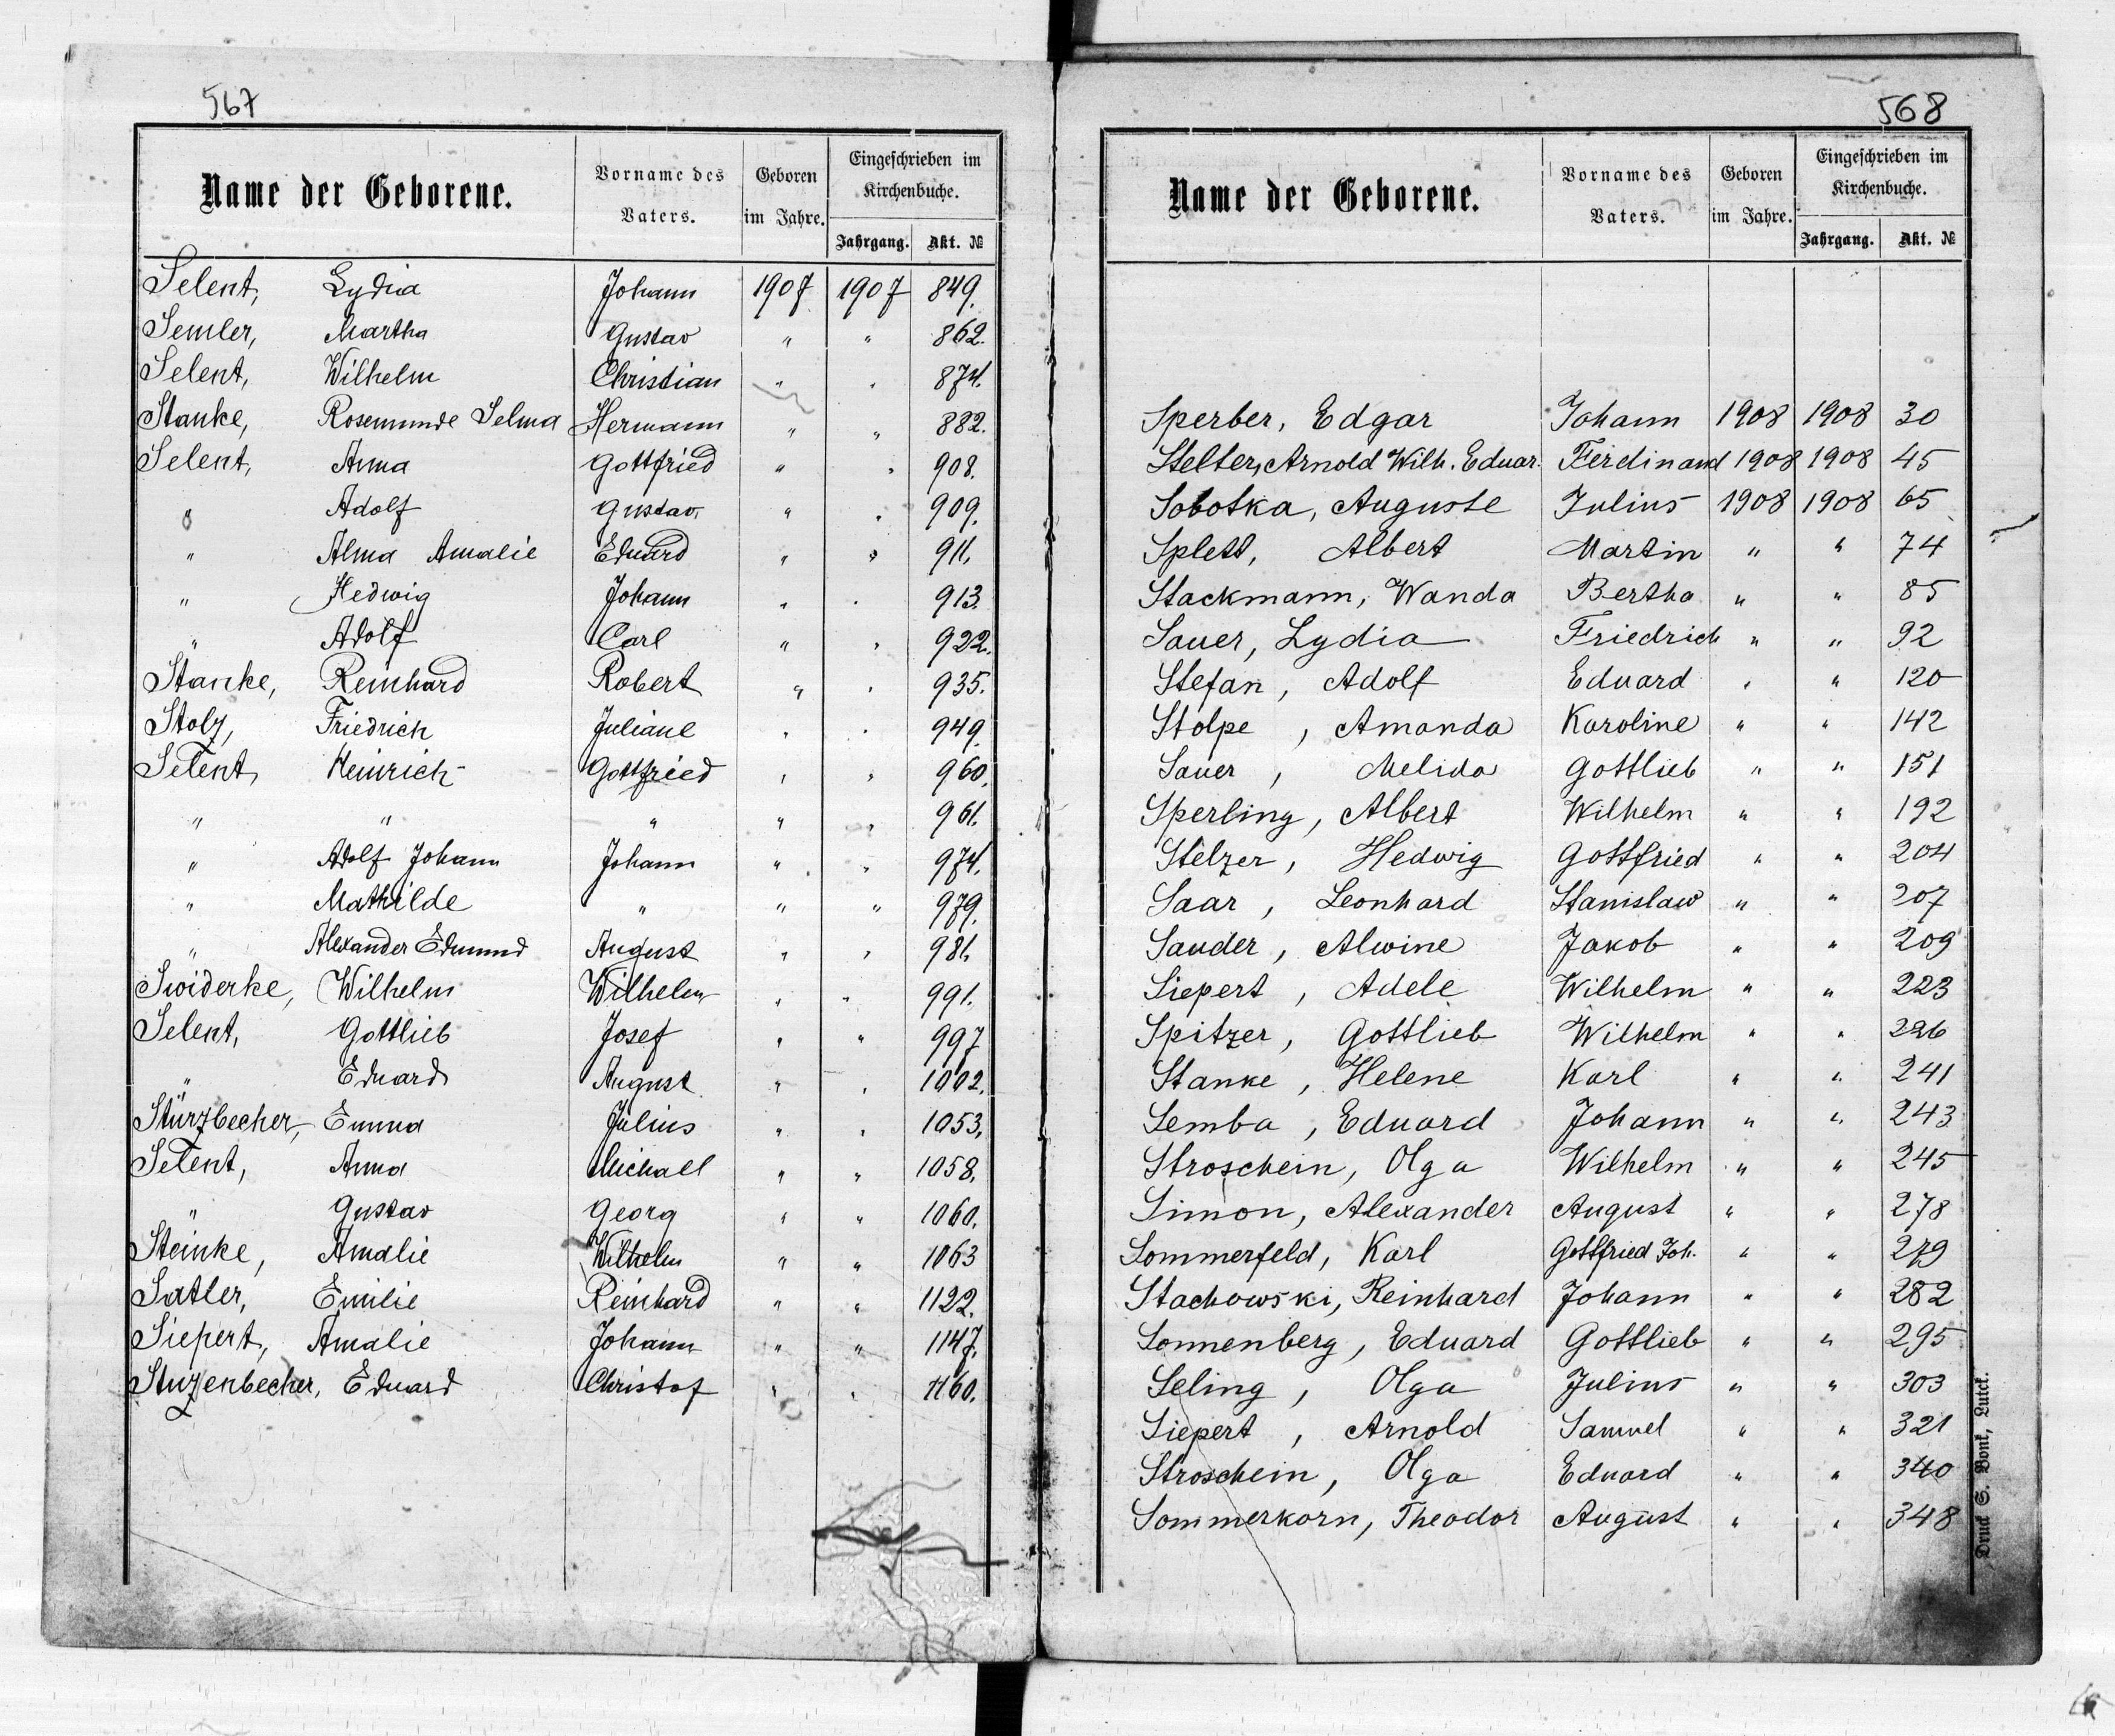 567
Name der Geborene. Vorname des Vaters. Geboren im Jahre. Eingeschrieben im Kirchenbuche. Jahrgang. Akt. №
Selent, Lydia Johann 1907 1907 849.
Semler, Martha Gustav " " 862.
Selent, Wilhelm Christian " " 874.
Stanke, Rosemunde Selma Hermann " " 882.
Selent, Anna Gottfried " " 908.
" Adolf Gustav, " " 909.
" Alma Amalie Eduard " " 911.
" Hedwig Johann " " 913.
" Adolf Carl " " 922.
Stanke, Reinhard Robert " " 935.
Stolz, Friedrich Juliane " " 949.
Selent, Heinrich Gottfried " " 960.
" " " " " 961.
" Adolf Johann Johann " " 974.
" Mathilde " " " 979.
" Alexander Edmund August " " 981.
Swiderke, Wilhelm Wilhelm " " 991.
Selent, Gottlieb Josef " " 997
" Eduard August " " 1002.
Stürzbecher, Emma Julius " " 1053.
Selent, Anna Michael " " 1058.
" Gustav Georg " " 1060.
Steinke, Amalie Wilhelm " " 1063
Satler, Emilie Reinhard " " 1122.
Siepert, Amalie Johann " " 1147.
Stuzenbecher, Eduard Christof " " 1160.
568
Name der Geborene. Vorname des Vaters. Geboren im Jahre. Eingeschrieben im Kirchenbuche. Jahrgang. Akt. №
Sperber, Edgar Johann 1908 1908 30
Stelter, Arnold Wilh. Eduar. Ferdinand 1908 1908 45
Sobotka, Auguste Julius 1908 1908 65
Splett, Albert Martin " " 74
Stackmann, Wanda Bertha " " 85
Sauer, Lydia Friedrich " " 92
Stefan, Adolf Eduard " " 120
Stolpe, Amanda Karoline " " 142
Sauer, Melida Gottlieb " " 151
Sperling, Albert Wilhelm " " 192
Stelzer, Hedwig Gottfried " " 204
Saar, Leonhard Stanislaw " " 207
Sauder, Alwine Jakob " " 209
Siepert, Adele Wilhelm " " 223
Spitzer, Gottlieb Wilhelm " " 226
Stanke, Helene Karl " " 241
Semba, Eduard Johann " " 243
Stroschein, Olga Wilhelm " " 245
Simon, Alexander August " " 278
Sommerfeld, Karl Gottfried Joh. " " 279
Stachowski, Reinhard Johann " " 282
Sonnenberg, Eduard Gottlieb " " 295
Seling, Olga Julius " " 303
Siepert, Arnold Samuel " " 321
Stroschein, Olga Eduard " " 340
Sommerkorn, Theodor August " " 348
Druck S. Bonk, Lutck.